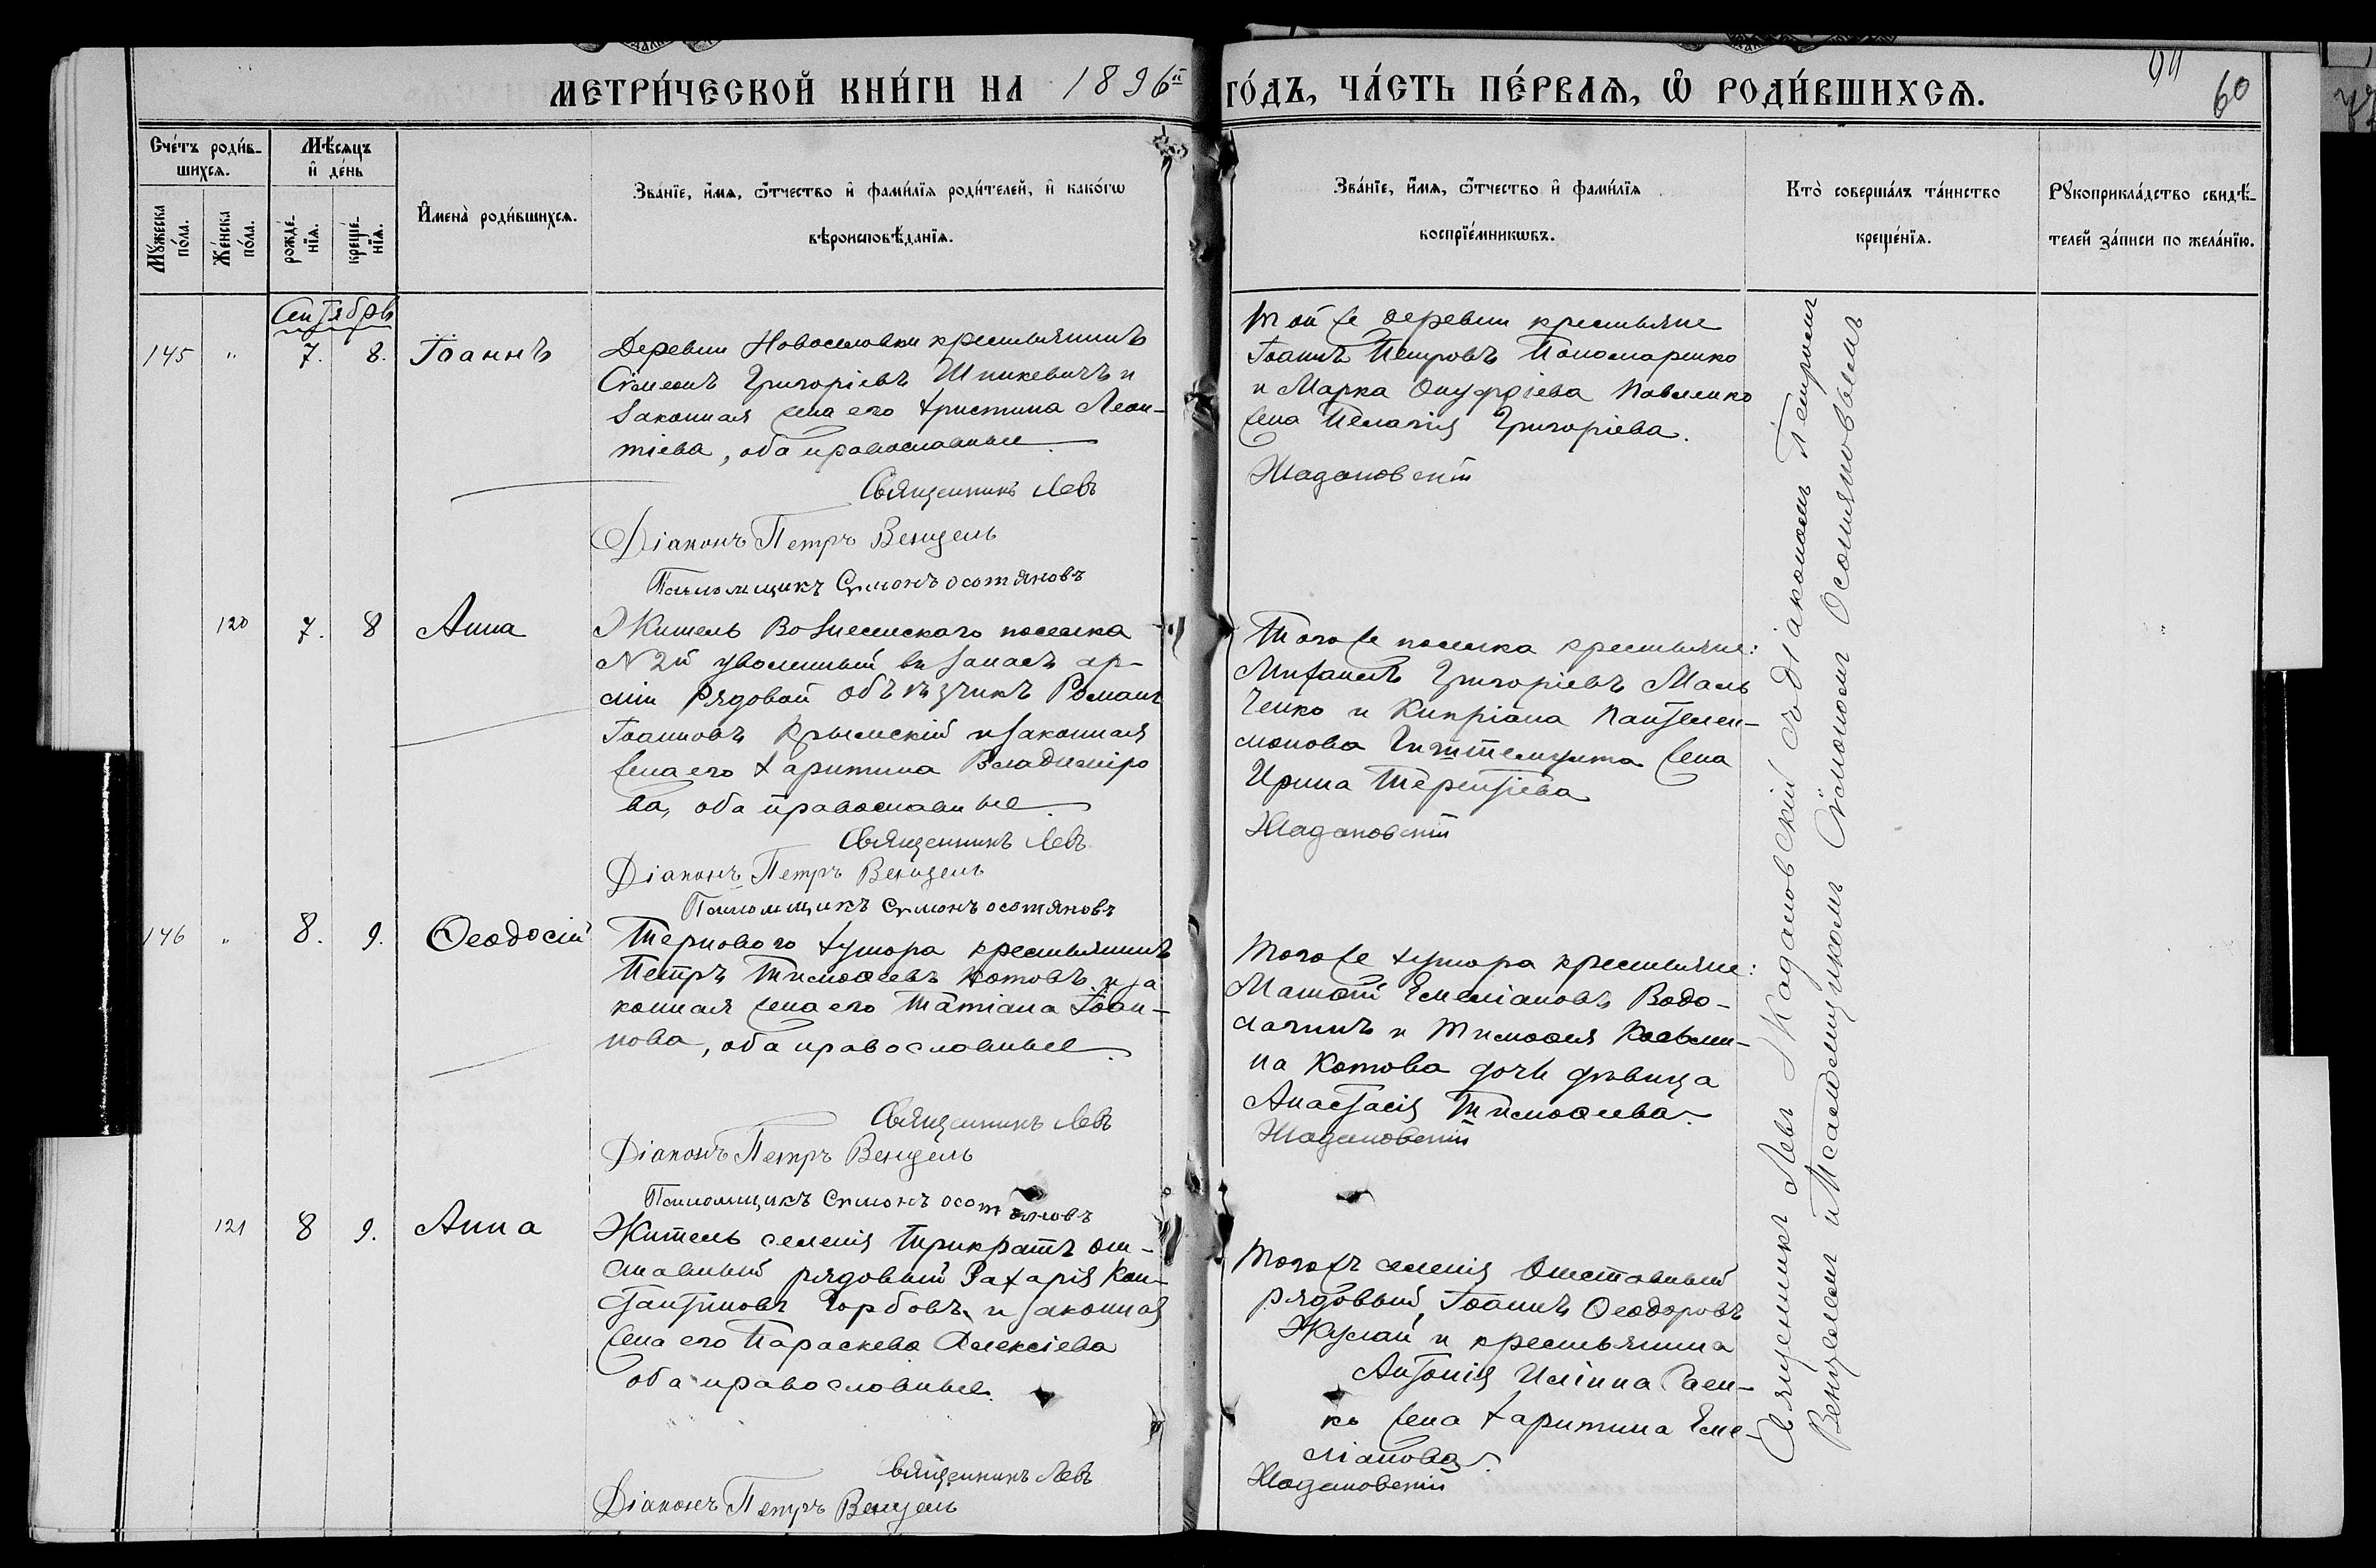 МЕТРИ́ЧЕСКОЙ КНИ́ГИ НА 1896й ГО́ДЪ, ЧА́СТЬ ПЕ́РВАѦ, Ѡ҆ РОДИ́ВШИХСѦ.
60
Сче́тъ роди́в-
шихсѧ.
Мꙋжеска
по́ла.
Же́нска
по́ла.
Мѣ́сѧцъ
и҆ де́нь
рожде́-
нїѧ.
креще́-
нїѧ.
И҆мена̀ роди́вшихсѧ.
Зва́нїе, и҆́мѧ, ѻ҆́тчество и҆ фами́лїѧ роди́телей, и҆ како́гѡ
вѣроисповѣ́данїѧ.
Зва́нїе, и҆́мѧ, ѻ҆́тчество и҆ фами́лїѧ
воспрїе́мникѡвъ.
Кто̀ соверша́лъ та́инство
креще́нїѧ.
Рꙋкоприкла́дство свидѣ́-
телей за́писи по жела́нїю.
Сентябрь
145 " 7. 8. Іоаннъ
Деревни Новоселовки крестьянинъ
Сѵмеонъ Григоріевъ Шпикевичъ и
законная жена его Христина Леон-
тіева, оба православные.
Священникъ Левъ
Діаконъ Петръ Венцель
Псаломщикъ Симонъ Осотяновъ
Той же деревни крестьяне
Іоаннъ Петровъ Пономаренко
и Марка Онуфріева Павленко
жена Пелагія Григоріева.
Жадановскій
120 7. 8 Анна
Житель Вознесенскаго поселка
N 2й уволенный въ запасъ ар-
міи рядовой объѣзчикъ Романъ
Іоанновъ Крымскій и законная
жена его Харитина Владиміро
ва, оба православные.
Священникъ Левъ
Діаконъ Петръ Венцель
Псаломщикъ Симонъ Осотяновъ
Того же поселка крестьяне:
Михаилъ Григоріевъ Маль
ченко и Кипріана Пантелеи-
монова жена
Ирина Терентіева
Жадановскій
146 " 8. 9. Ѳеодосій
Терноваго хутора крестьянинъ
Петръ Тимоѳеевъ Котовъ и за
конная жена его Татіана Іоан-
нова, оба православные.
Священникъ Левъ
Діаконъ Петръ Венцель
Псаломщикъ Симонъ Осотяновъ
Того же хутора крестьяне:
Матѳій Емеліановъ Водо-
лагинъ и Тимоѳея Косьми-
на Котова дочь дѣвица
Анастасія Тимоѳеева.
Жадановскій
121 8 9. Анна
Житель селенія Трикратъ от-
ставный рядовый Захарія Кон-
стантиновъ Горбовъ и законная
жена его Параскева Алексіева
оба православные.
Священникъ Левъ
Діаконъ Петръ Венцель
Того жъ селенія Отставный
рядовый, Іоаннъ Ѳеодоровъ
и крестьянина
Антонія Иліина
жена Харитина Еме-
ліанова.
Жадановскій
Священникъ Левъ Жадановскій съ діакономъ Петромъ
Венцелемъ и Псаломщикомъ Сѵмономъ Осотяновымъ